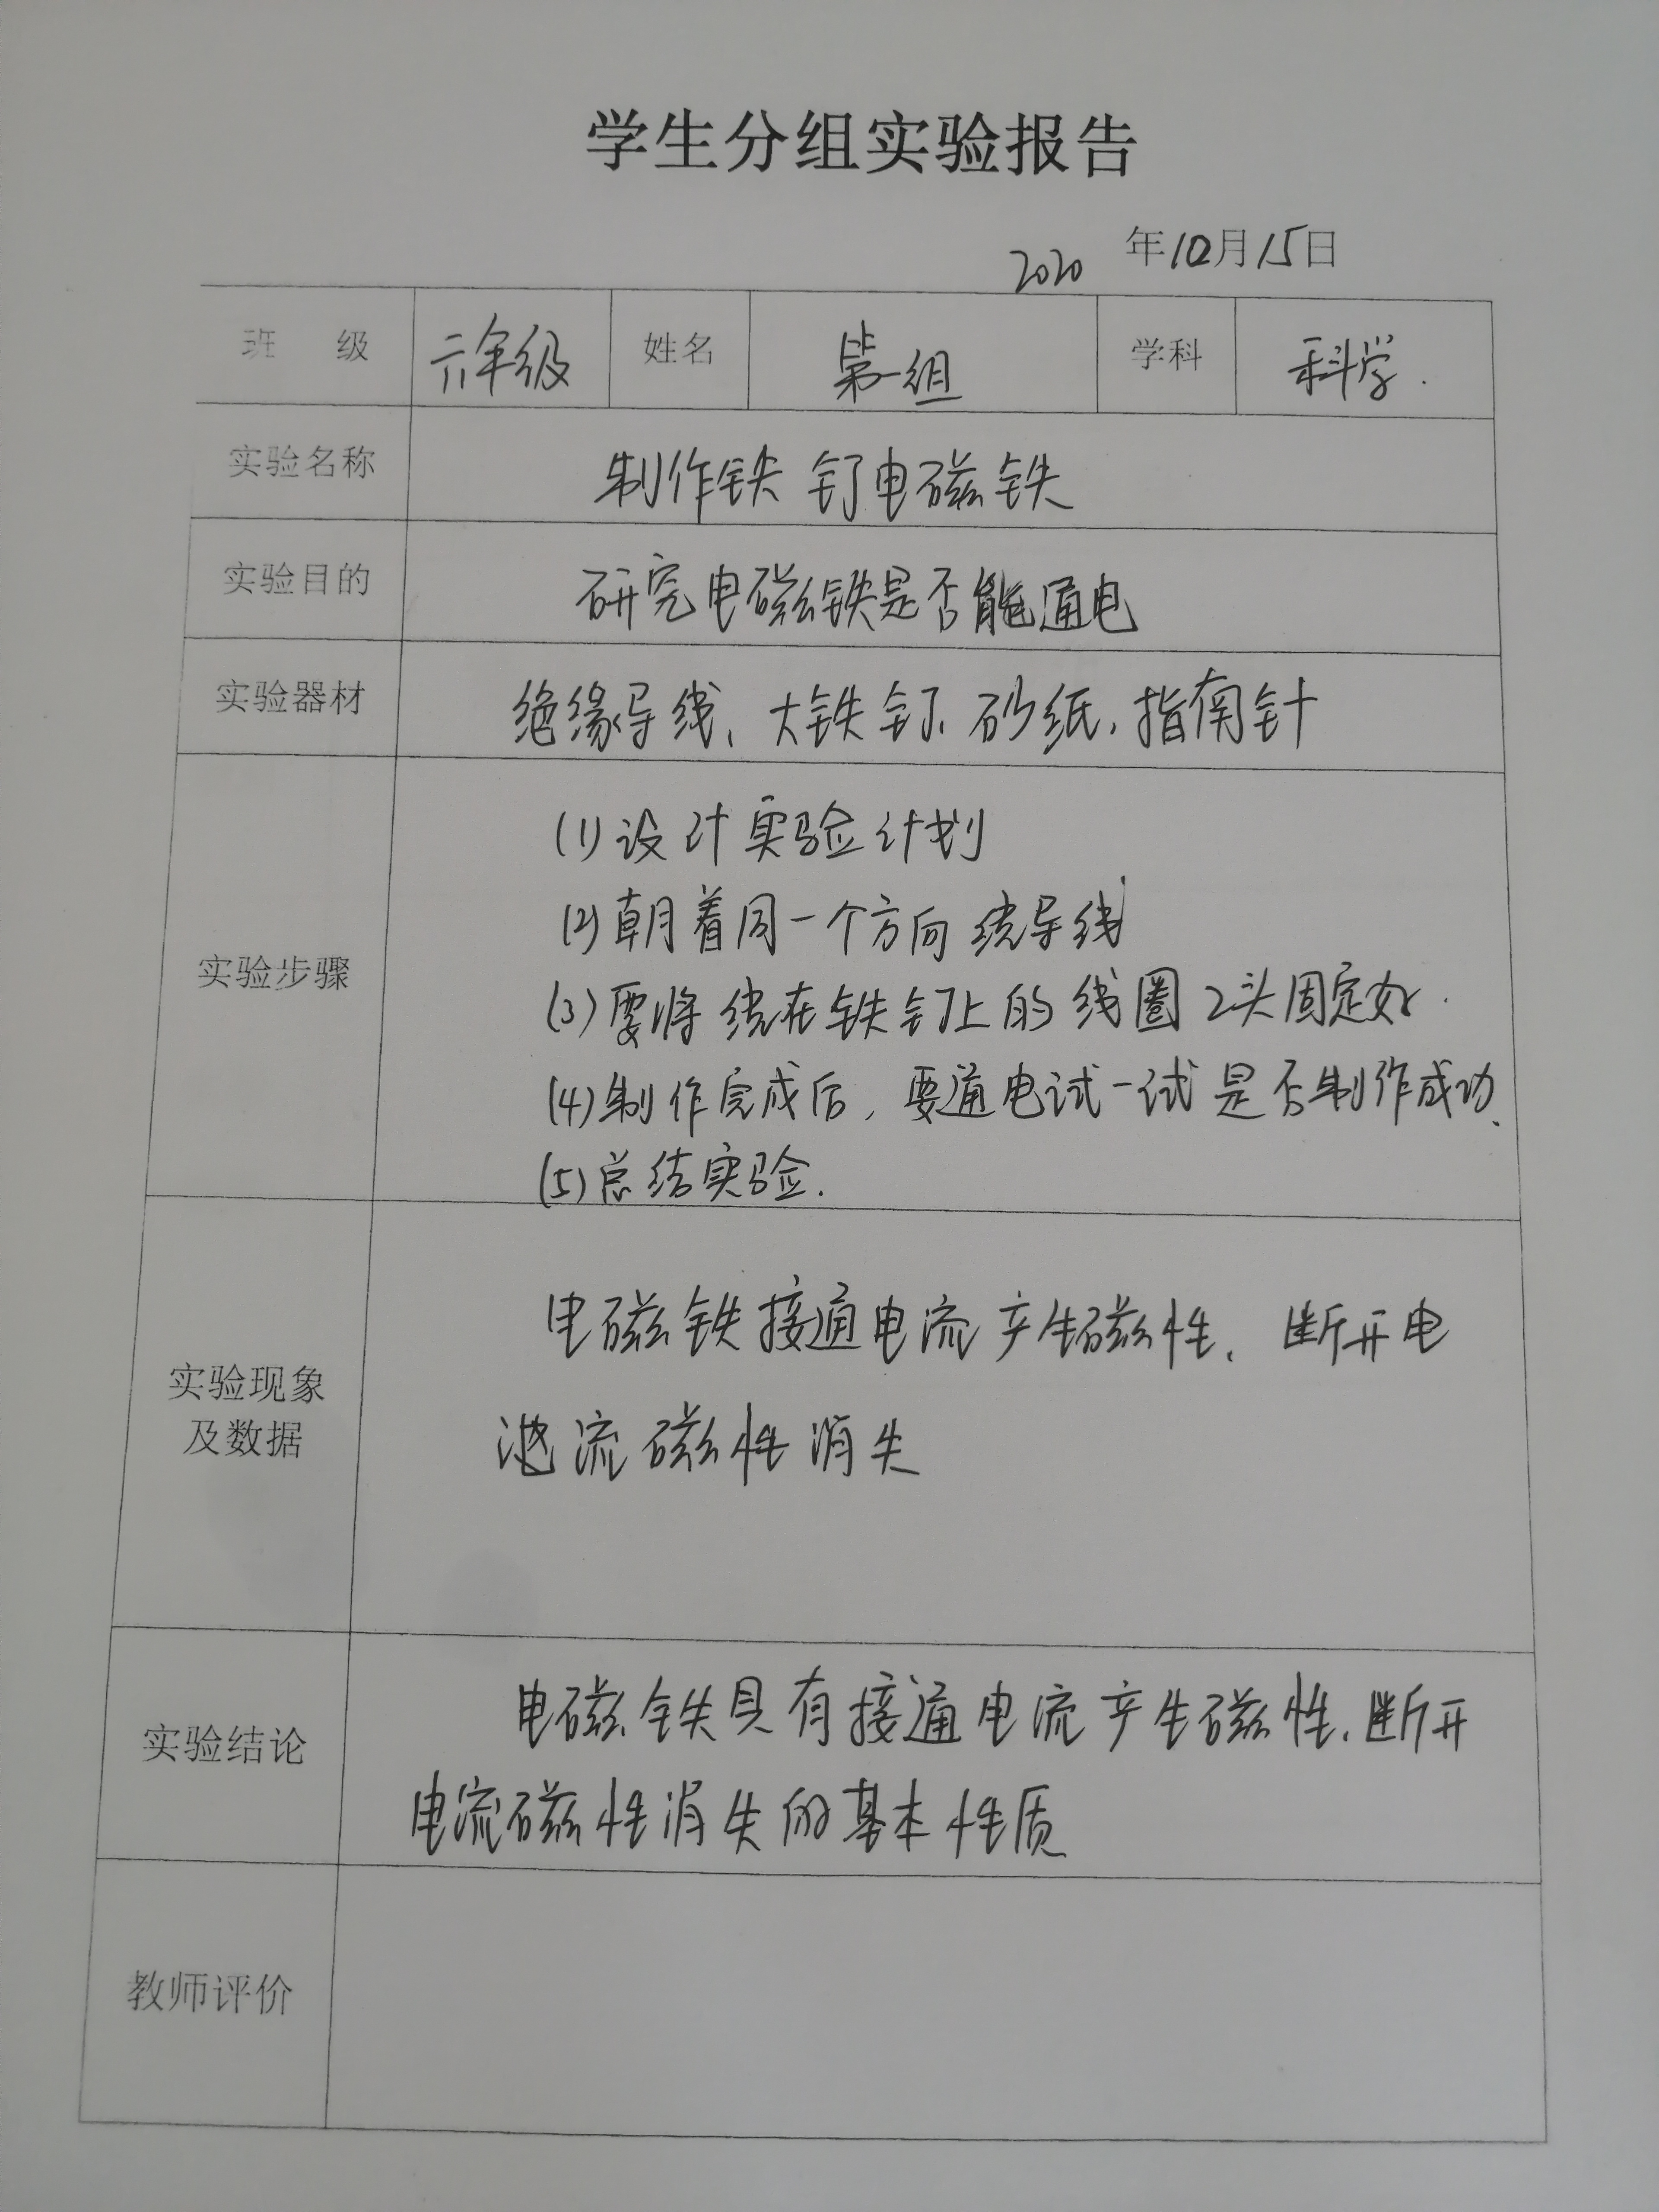 学生分组实验报告
2020 年10月15日
班 级 六年级 姓名 第一组 学科 科学.
实验名称 制作铁钉电磁铁
实验目的 研究电磁铁是否能通电
实验器材 绝缘导线、大铁钉、砂纸、指南针
实验步骤
(1)设计实验计划
(2)朝着同一个方向绕导线
(3)要将绕在铁钉上的线圈2头固定好.
(4)制作完成后,要通电试一试是否制作成功、
(5)总结实验.
实验现象
及数据
电磁铁接通电流产生磁性、断开电
流磁性消失
实验结论
电磁铁具有接通电流产生磁性、断开
电流磁性消失的基本性质
教师评价